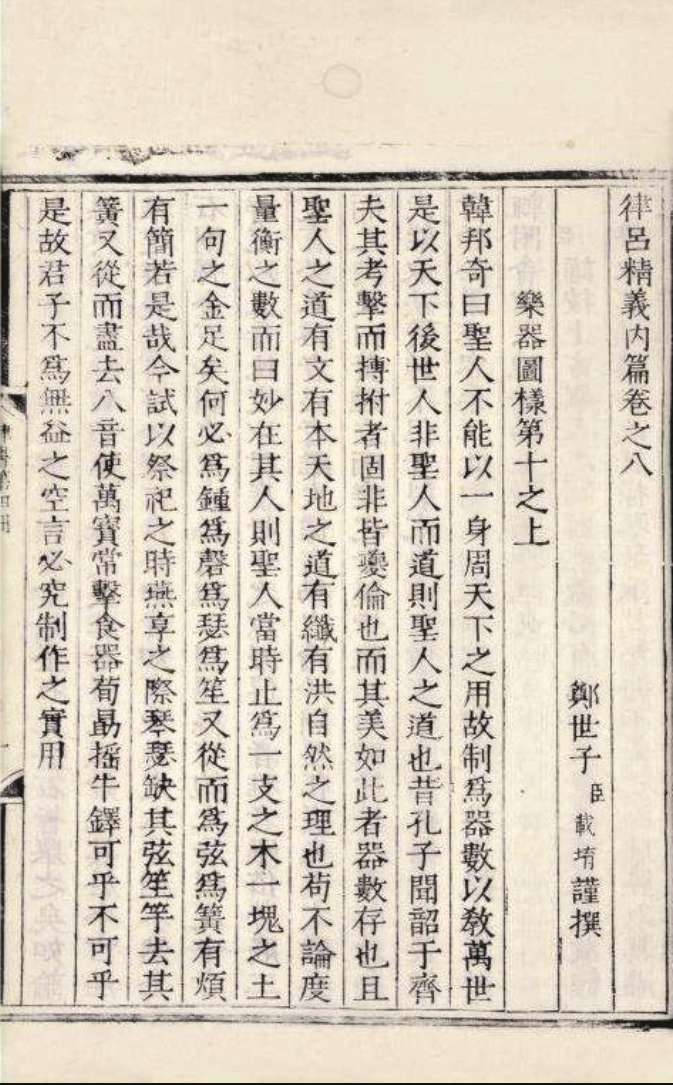 律呂精義内篇卷之八
鄭世子臣載堉謹撰
樂器圖樣第十之上
韓邦奇曰聖人不能以一身周天下之用故制爲器數以敎萬世
是以天下後世人非聖人而道則聖人之道也昔孔子聞韶于齊
夫其考擊而搏拊者固非皆夔倫也而其美如此者器數存也且
聖人之道有文有本天地之道有纖有洪自然之理也茍不論度
量衡之數而曰妙在其人則聖人當時止爲一支之木一塊之土
一句之金足矣何必爲鍾爲磬爲瑟爲笙又從而爲弦爲簧有煩
有簡若是哉今試以祭祀之時燕享之際琴瑟缺其弦笙竽去其
簧又從而盡去八音使萬寳常擊食器荀勗摇牛鐸可乎不可乎
是故君子不爲無益之空言必究制作之實用